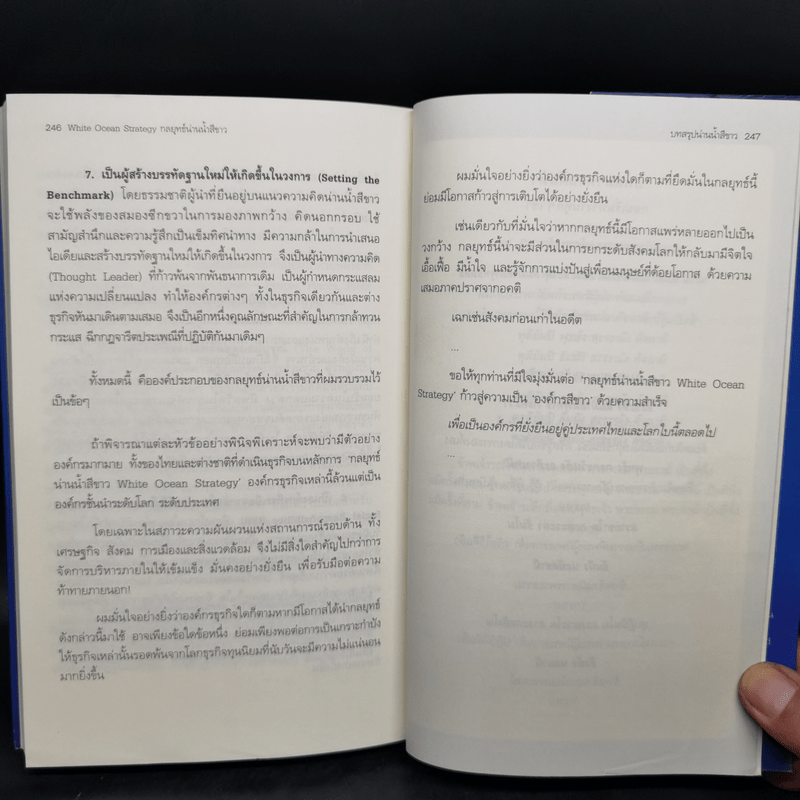 246 White Ocean Strategy กลยุทธ์น่านน้ำสีขาว
7. เป็นผู้สร้างบรรทัดฐานใหม่ให้เกิดขึ้นในวงการ (Setting the
Benchmark) โดยธรรมชาติผู้นำที่ยืนอยู่บนแนวความคิดน่านน้ำสีขาว
จะใช้พลังของสมองซีกขวาในการมองภาพกว้าง คิดนอกกรอบ ใช้
สามัญสำนึกและความรู้สึกเป็นเข็มทิศนำทาง มีความกล้าในการนำเสนอ
ไอเดียและสร้างบรรทัดฐานใหม่ให้เกิดขึ้นในวงการ จึงเป็นผู้นำทางความคิด
(Thought Leader) ที่ก้าวพ้นจากพันธนาการเดิม เป็นผู้กำหนดกระแสลม
แห่งความเปลี่ยนแปลง ทำให้องค์กรต่างๆ ทั้งในธุรกิจเดียวกันและต่าง
ธุรกิจหันมาเดินตามเสมอ จึงเป็นอีกหนึ่งคุณลักษณะที่สำคัญในการกล้าทวน
กระแส ฉีกกฎจารีตประเพณีที่ปฏิบัติกันมาเดิมๆ
ทั้งหมดนี้ คือองค์ประกอบของกลยุทธ์น่านน้ำสีขาวที่ผมรวบรวมไว้
เป็นข้อๆ
ถ้าพิจารณาแต่ละหัวข้ออย่างพินิจพิเคราะห์จะพบว่ามีตัวอย่าง
องค์กรมากมาย ทั้งของไทยและต่างชาติที่ดำเนินธุรกิจบนหลักการ ‘กลยุทธ์
น่านน้ำสีขาว White Ocean Strategy’ องค์กรธุรกิจเหล่านี้ล้วนแต่เป็น
องค์กรชั้นนำระดับโลก ระดับประเทศ
โดยเฉพาะในสภาวะความผันผวนแห่งสถานการณ์รอบด้าน ทั้ง
เศรษฐกิจ สังคม การเมืองและสิ่งแวดล้อม จึงไม่มีสิ่งใดสำคัญไปกว่าการ
จัดการบริหารภายในให้เข้มแข็ง มั่นคงอย่างยั่งยืน เพื่อรับมือต่อความ
ท้าทายภายนอก!
ผมมั่นใจอย่างยิ่งว่าองค์กรธุรกิจใดก็ตามหากมีโอกาสได้นำกลยุทธ์
ดังกล่าวนี้มาใช้ อาจเพียงข้อใดข้อหนึ่ง ย่อมเพียงพอต่อการเป็นเกราะกำบัง
ให้ธุรกิจเหล่านั้นรอดพ้นจากโลกธุรกิจทุนนิยมที่นับวันจะมีความไม่แน่นอน
มากยิ่งขึ้น
บทสรุปน่านน้ำสีขาว 247
ผมมั่นใจอย่างยิ่งว่าองค์กรธุรกิจแห่งใดก็ตามที่ยึดมั่นในกลยุทธ์นี้
ย่อมมีโอกาสก้าวสู่การเติบโตได้อย่างยั่งยืน
เช่นเดียวกับที่มั่นใจว่าหากกลยุทธ์นี้มีโอกาสแพร่หลายออกไปเป็น
วงกว้าง กลยุทธ์นี้น่าจะมีส่วนในการยกระดับสังคมโลกให้กลับมามีจิตใจ
เอื้อเฟื้อ มีน้ำใจ และรู้จักการแบ่งปันสู่เพื่อนมนุษย์ที่ด้อยโอกาส ด้วยความ
เสมอภาคปราศจากอคติ
เฉกเช่นสังคมก่อนเก่าในอดีต
...
ขอให้ทุกท่านที่มีใจมุ่งมั่นต่อ ‘กลยุทธ์น่านน้ำสีขาว White Ocean
Strategy’ ก้าวสู่ความเป็น ‘องค์กรสีขาว’ ด้วยความสำเร็จ
เพื่อเป็นองค์กรที่ยั่งยืนอยู่คู่ประเทศไทยและโลกใบนี้ตลอดไป
...